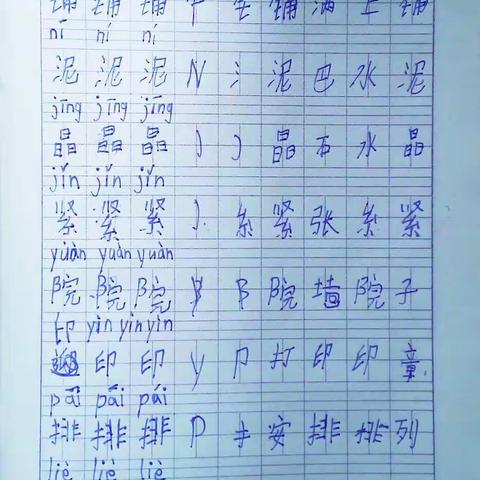 铺 铺 铺 P 钅 铺 满 上 铺
ní ní ní
泥 泥 泥 N 氵 泥 巴 水 泥
jīng jīng jīng
晶 晶 晶 J 日 晶 石 水 晶
jǐn jǐn jǐn
紧 紧 紧 J 糸 紧 张 糸 紧
yuàn yuàn yuàn
院 院 院 Y 阝 院 墙 院 子
印 yìn yìn yìn
印 印 Y 卩 打 印 印 章
pái pái pái
排 排 排 P 扌 安 排 排 列
liè liè liè